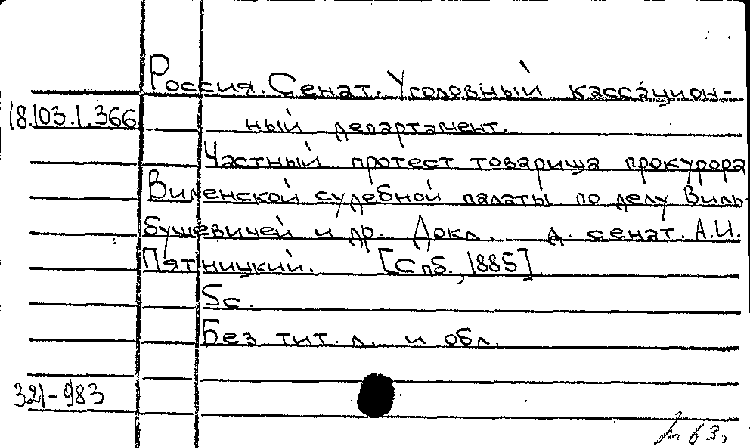 Россия. Сенат. Уголовный кассацион-
18.103.1.366
ный департамент.
Частный протест товарища прокурора
Виленской судебной палаты по делу Виль-
бушевичей и др. Докл. д. сенат. А.И.
Пятницкий. [Спб., 1885]
5с.
Без тит. л. и обл.
321-983